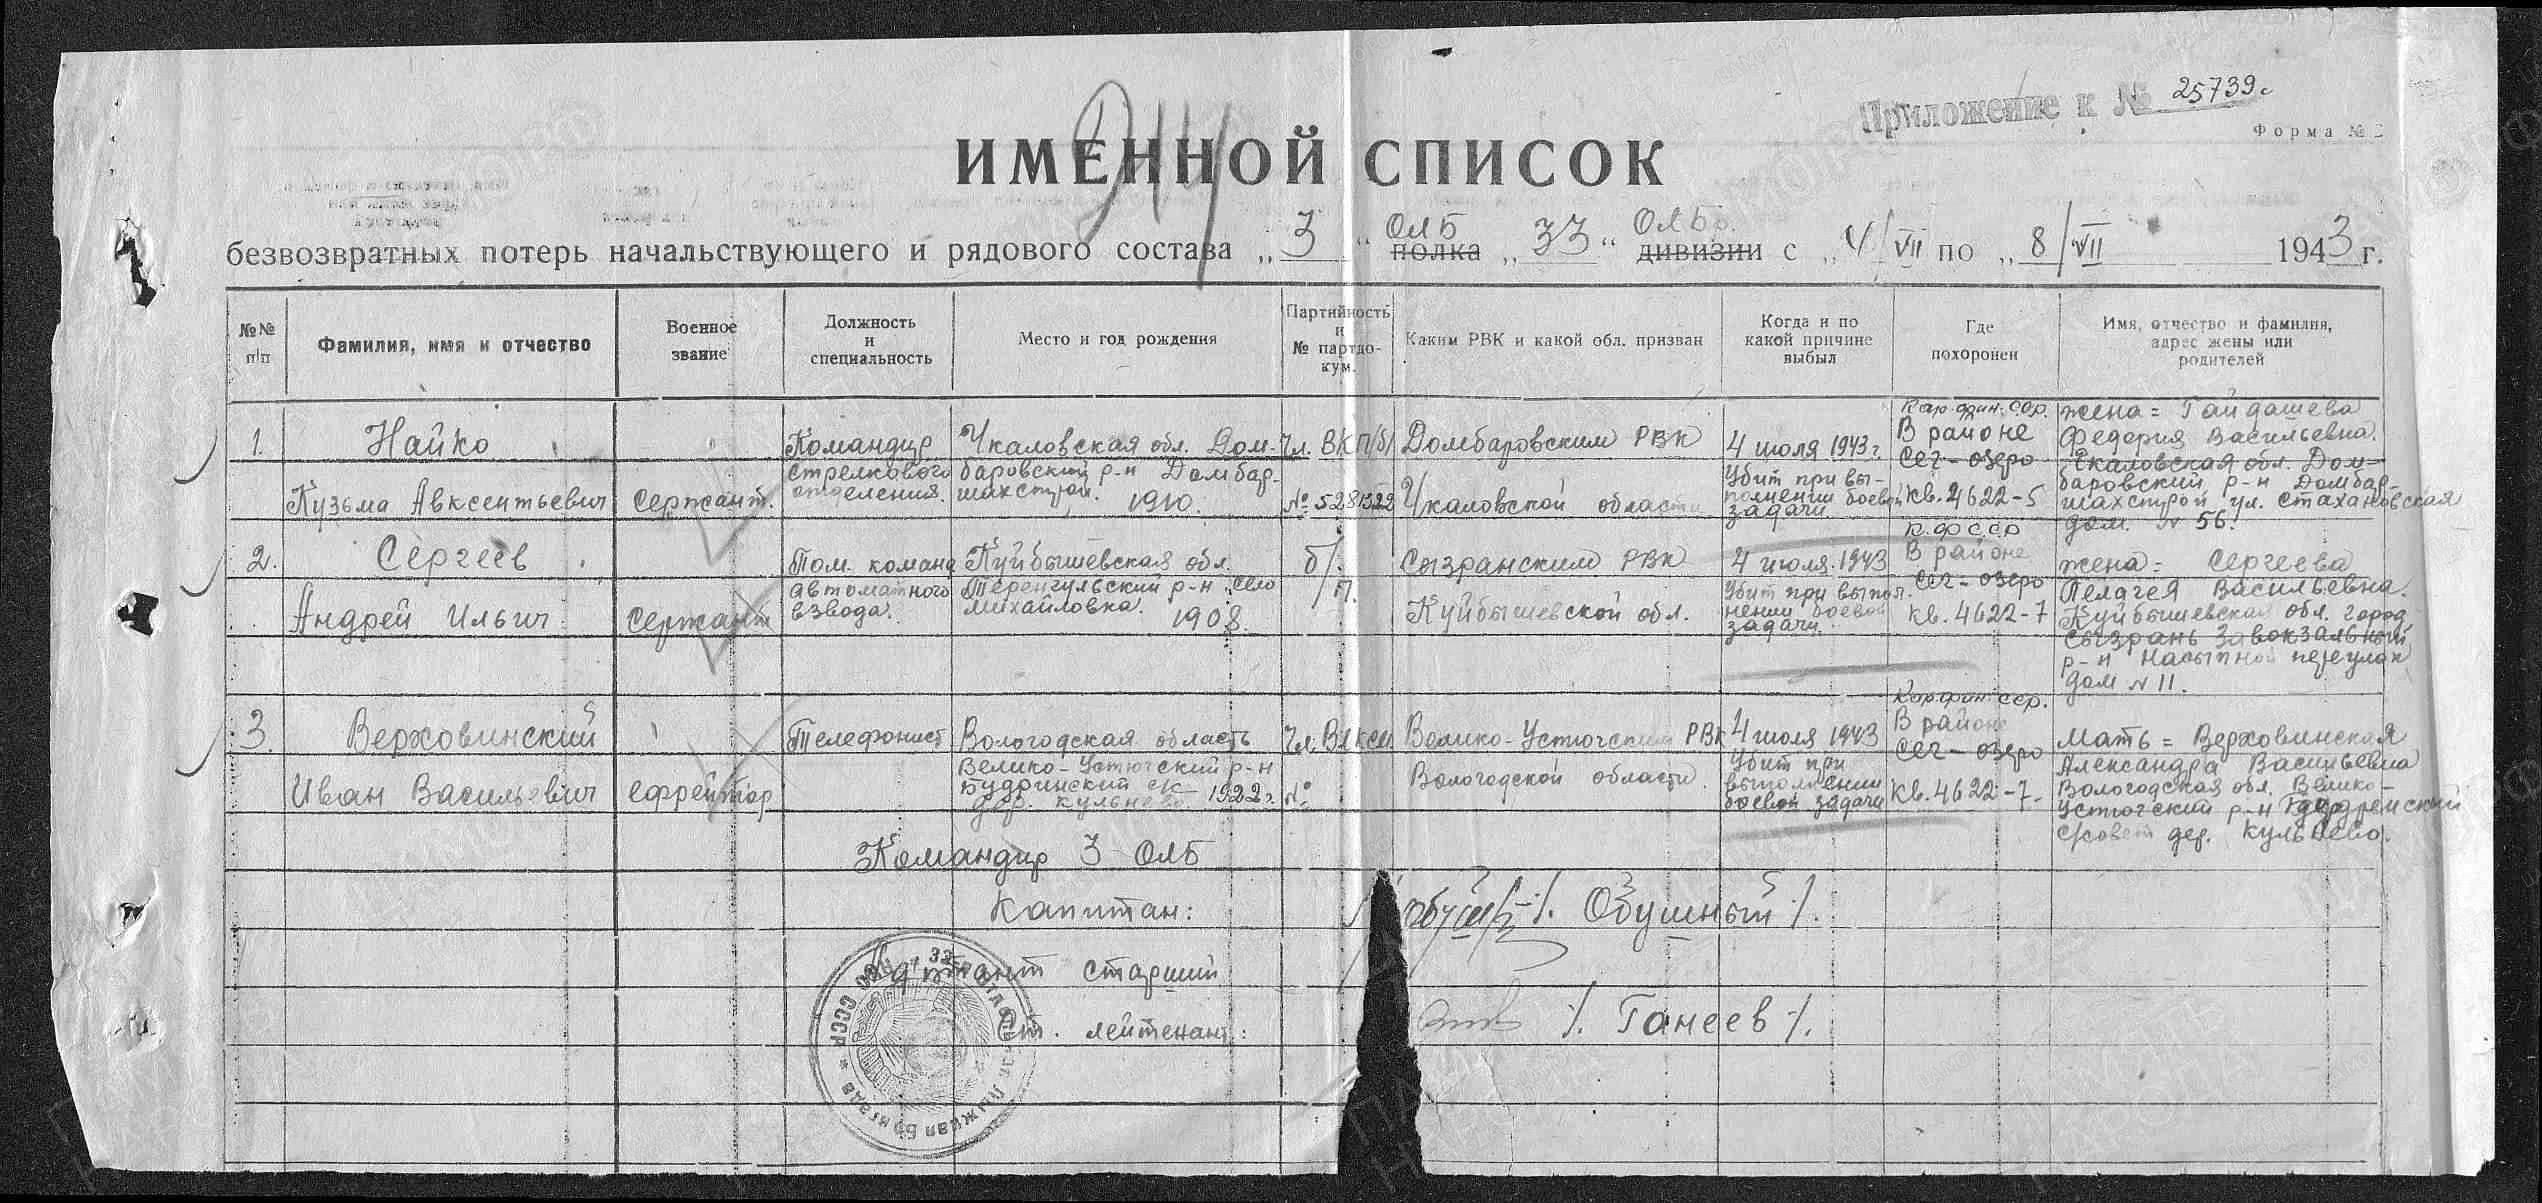 Приложение к № 25739с
Форма № 2
ИМЕННОЙ СПИСОК
безвозвратных потерь начальствующего и рядового состава „ 3 “ ОЛБ полка „ 33 “ ОЛБр. дивизии с „ 4/VII по „ 8/VII 1943 г.
№№ п/п
Фамилия, имя и отчество
Военное звание
Должность и специальность
Место и год рождения
Партийность и № партдокум.
Каким РВК и какой обл. призван
Когда и по какой причине выбыл
Где похоронен
Имя, отчество и фамилия, адрес жены или родителей
1.
Найко
Кузьма Авксентьевич
сержант.
Командир
стрелкового
отделения.
Чкаловская обл. Дом-
баровский р-н Домбар-
шахстрой.
1910.
Чл. ВКП/б/
№ 5281322
Домбаровским РВК
Чкаловской области
4 июля 1943 г.
Убит при вы-
полнении боевой
задачи
Кар. фин. ССР.
В районе
Сег-озеро
кв. 4622-5
жена = Гайдашева
Федория Васильевна.
Чкаловская обл. Дом-
баровский р-н Домбар-
шахстрой ул. Стахановская
дом. № 56.
2.
Сергеев
Андрей Ильич
сержант
Пом. команд
автоматного
взвода.
Куйбышевская обл.
Теренгульский р-н село
Михайловка.
1908.
б/п.
Сызранским РВК
Куйбышевской обл.
4 июля 1943
Убит при выпол-
нении боевой
задачи.
К.Ф ССР
В районе
Сег-озеро
кв. 4622-7
жена = Сергеева
Пелагея Васильевна.
Куйбышевская обл. город
Сызрань Завокзальный
р-н Насыпной переулок
дом № 11.
3.
Верховинский
Иван Васильевич
ефрейтор
Телефонист
Вологодская область
Велико-Устюгский р-н
Будринский с/с
дер. Кульнево. 1922 г.
Чл. ВЛКСМ
№
Велико-Устюгским РВК
Вологодской области
4 июля 1943
Убит при
выполнении
боевой задачи
Кар. фин. ССР.
В районе
Сег-озеро
кв. 4622-7.
Мать = Верховинская
Александра Васильевна
Вологодская обл. Велико-
Устюгский р-н
с/совет дер. Кульнево.
Командир 3 ОЛБ
Капитан: /. Обушный /.
Адютант старший
Ст. лейтенант: /. Ганеев /.
33 Отдельная Лыжная Бригада * СССР